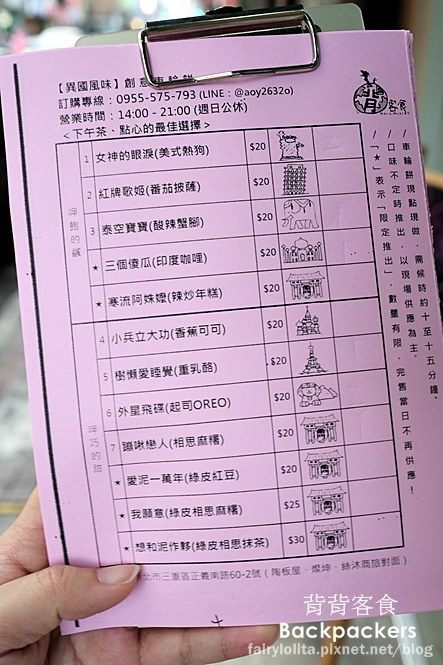 【異國風味】創意車輪餅
訂購專線：0955-575-793 (LINE：@aoy2632o)
營業時間：14:00 - 21:00 (週日公休)
<下午茶、點心的最佳選擇>
背客食
呷飽的鹹
1 女神的眼淚(美式熱狗) $20
2 紅牌歌姬(番茄披薩) $20
3 泰空寶寶(酸辣蟹腳) $20
★ 三個傻瓜(印度咖哩) $20
★ 寒流阿妹嬤(辣炒年糕) $20
呷巧的甜
4 小兵立大功(香蕉可可) $20
5 樹懶愛睡覺(重乳酪) $20
6 外星飛碟(起司OREO) $20
7 蹦啾戀人(相思麻糬) $20
★ 愛泥一萬年(綠皮紅豆) $20
★ 我願意(綠皮相思麻糬) $25
★ 想和泥作夥(綠皮相思抹茶) $30
/車輪餅現點現做．需候時約十至十五分鐘．
/口味不定時推出．以現場供應為主．
/「★」表示「限定推出」．數量有限．完售當日不再供應！
北市三重區正義南路60-2號（陶板屋、燦坤、絲沐商旅對面）
背背客食
Backpackers
fairylolita.pixnet.net/blog